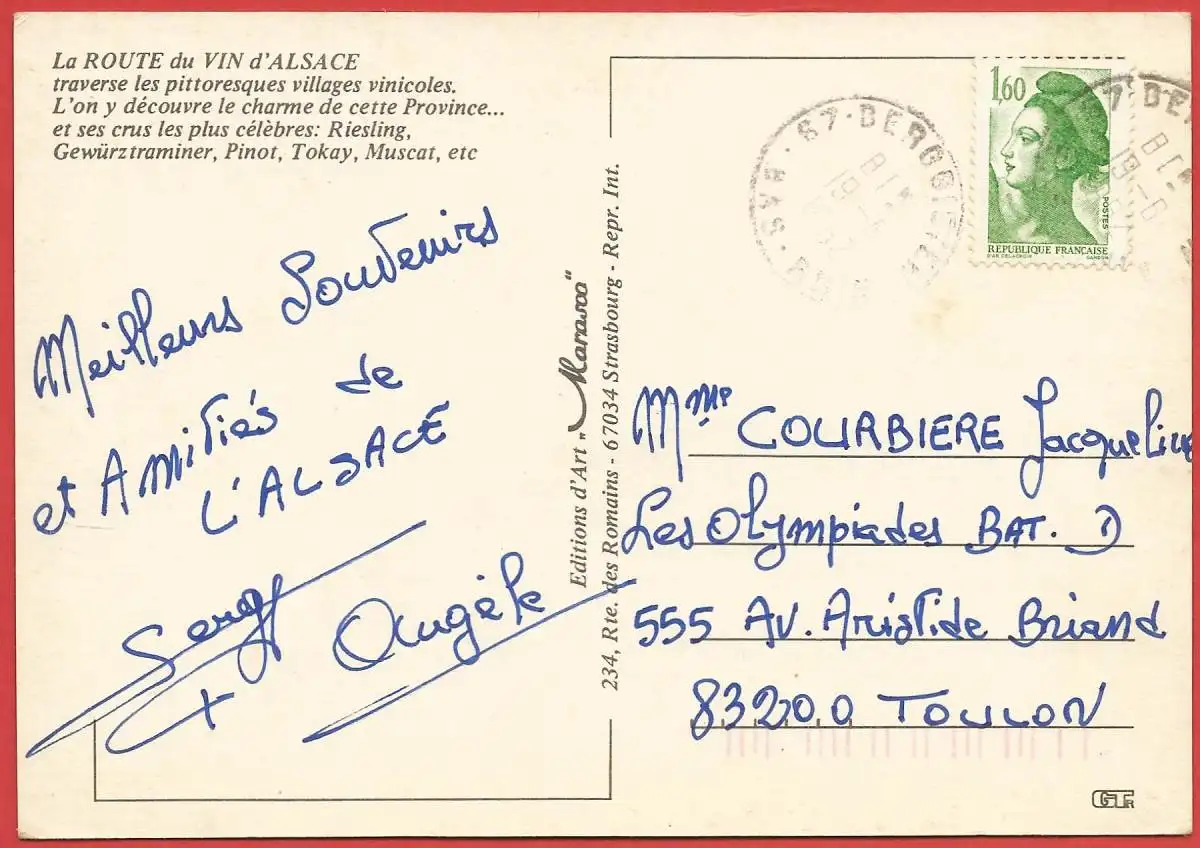 La ROUTE du VIN d'ALSACE
traverse les pittoresques villages vinicoles.
L'on y découvre le charme de cette Province...
et ses crus les plus célèbres: Riesling,
Gewürztraminer, Pinot, Tokay, Muscat, etc
Meilleurs Souvenirs
et Amitiés de
L'ALSACE
Serge
+ Angèle
Editions d'Art „Marasco"
234, Rte. des Romains - 67034 Strasbourg - Repr. Int.
1,60
POSTES
REPUBLIQUE FRANÇAISE
D'AP. DELACROIX GANDON
67 - BERGBIETEN
BAS-
Mme COURBIERE Jacqueline
Les Olympiades BAT. D
555 Av. Aristide Briand
83200 TOULON